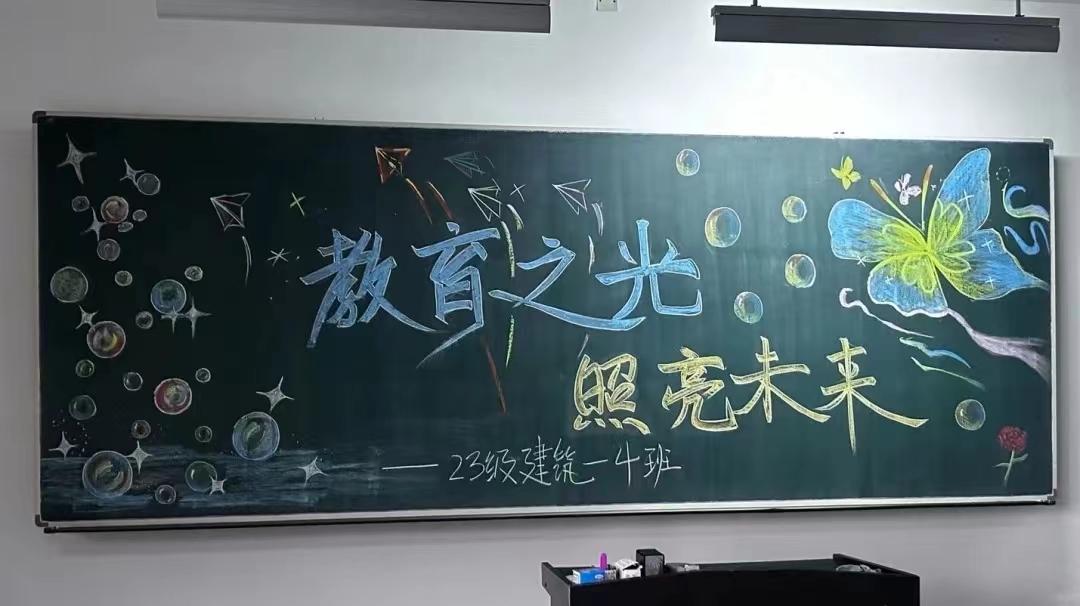 教育之光
照亮未来
——23级建筑一4班